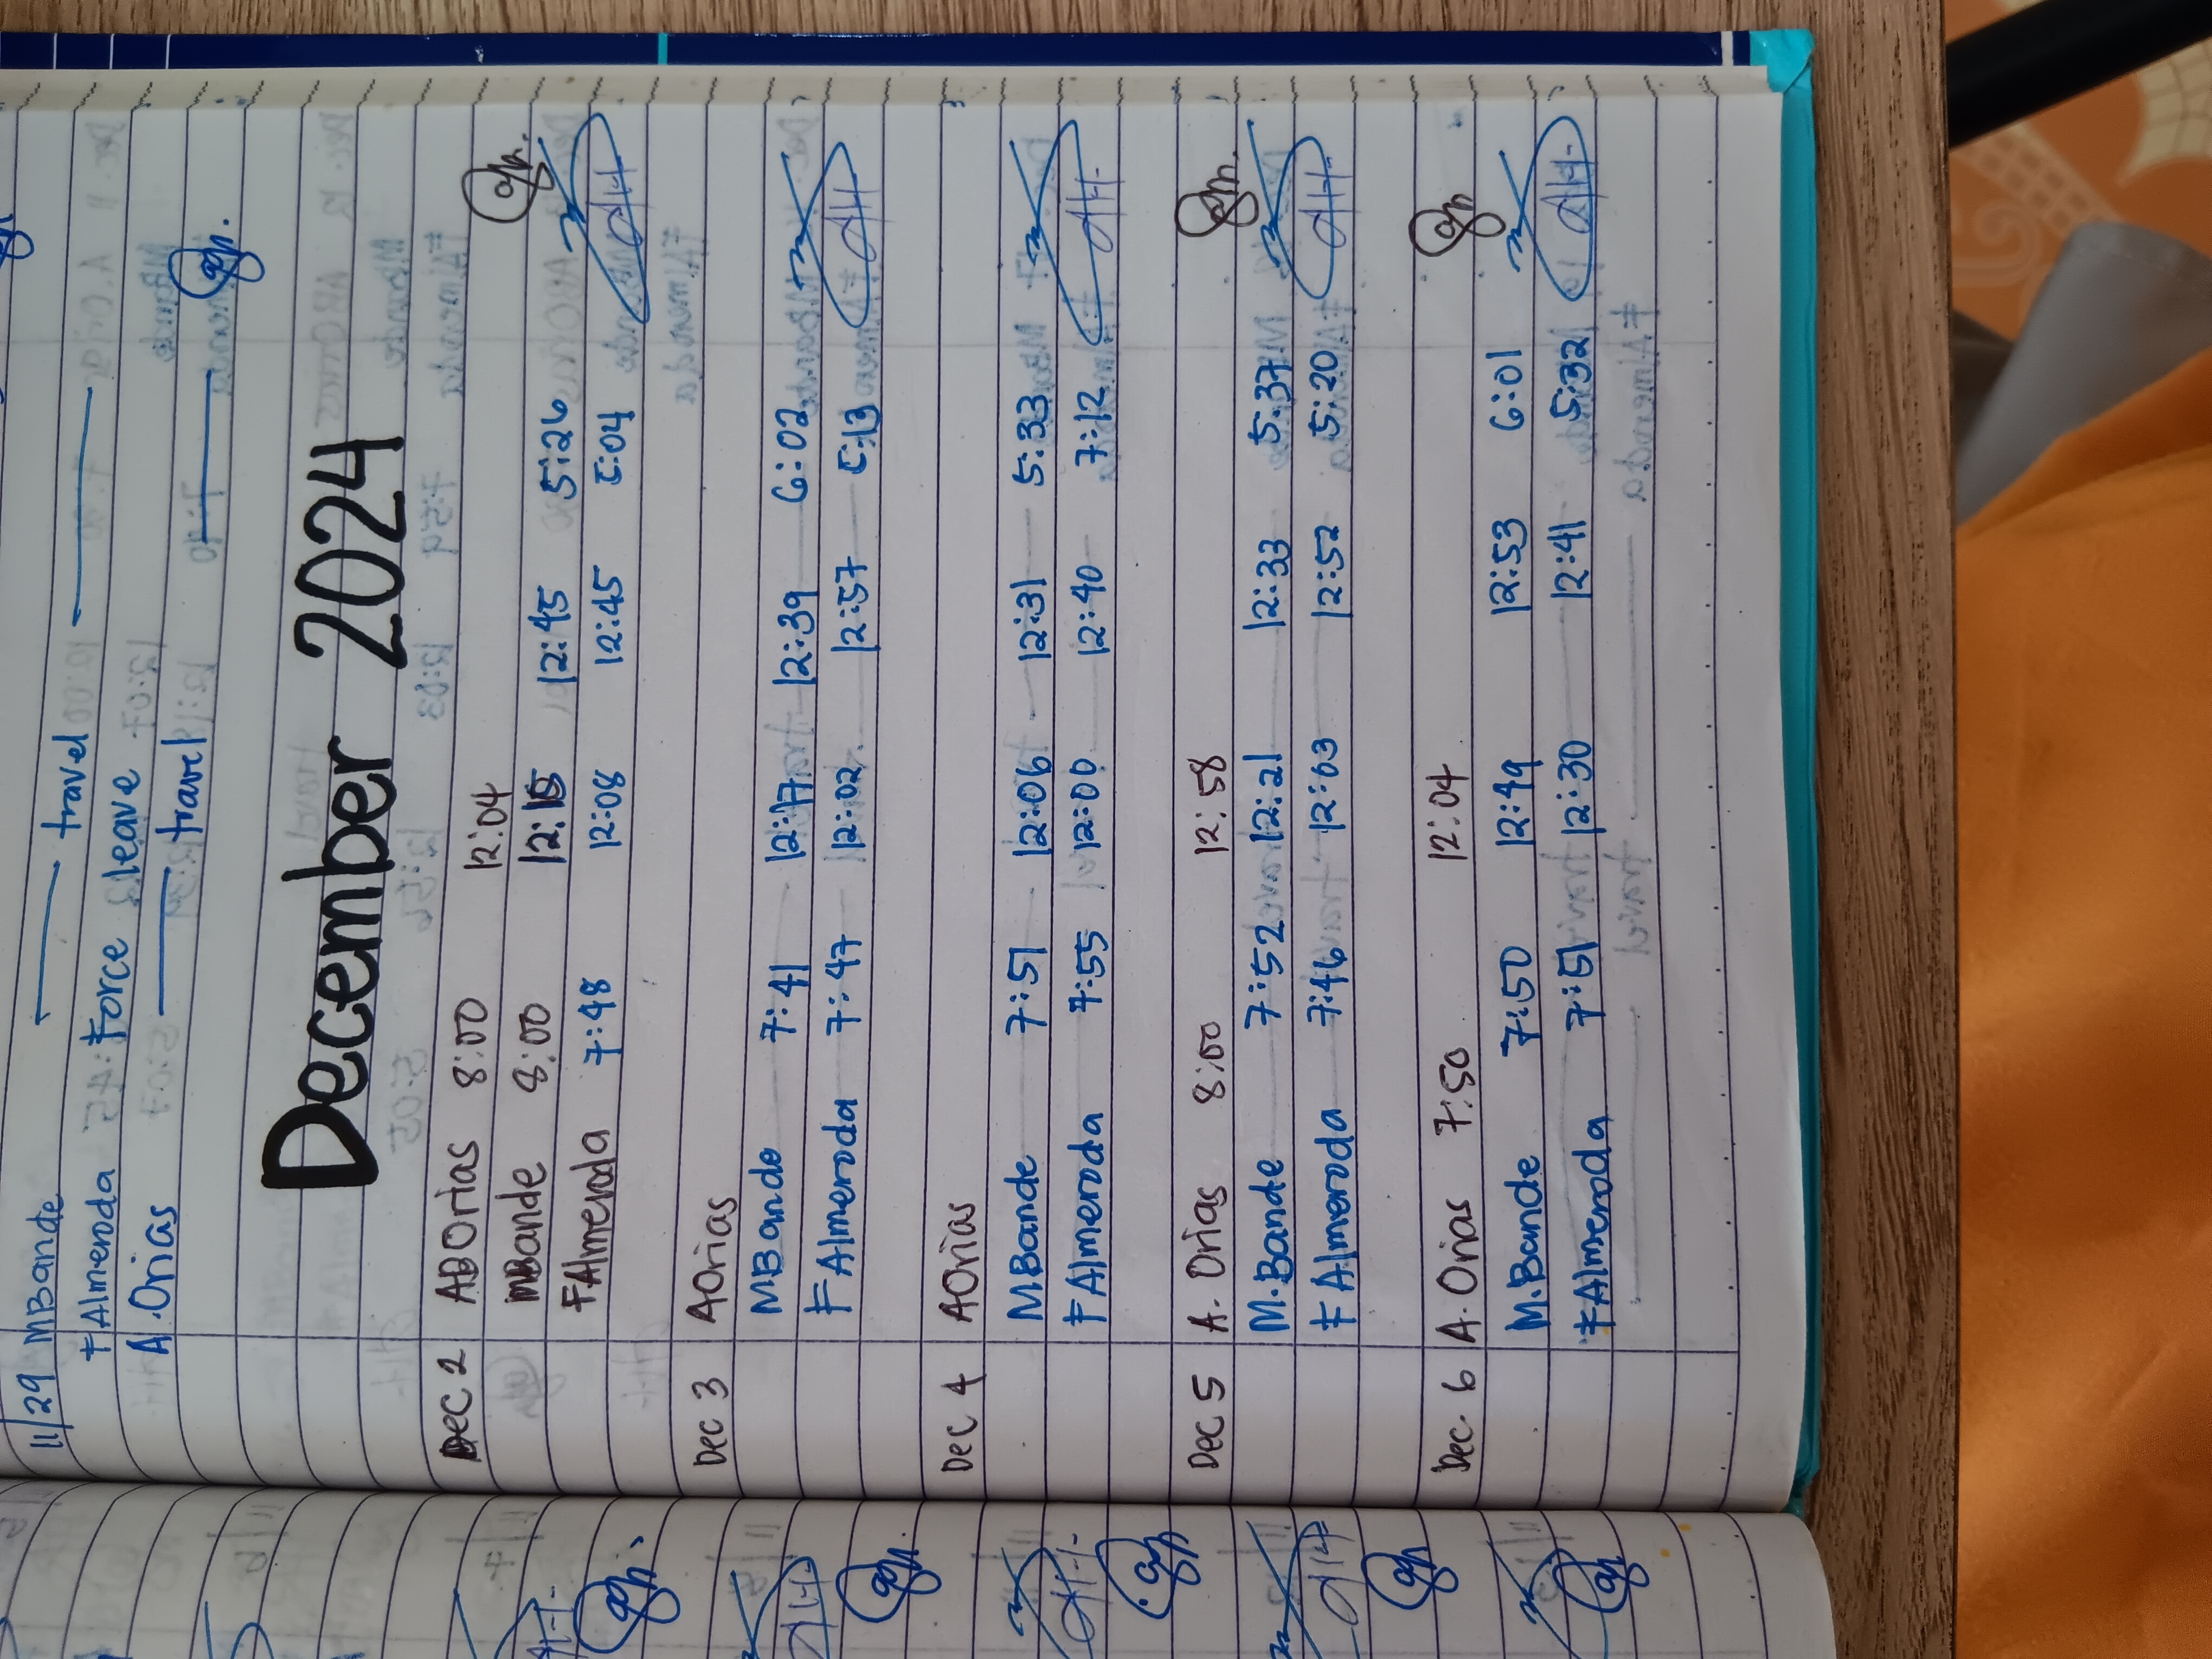 11/29 MBande travel
F Almeroda Force leave
A. Orias travel
December 2024
Dec 2 ABOrias 8:00 12:04
MBande 8:00 12:15 12:45 5:26
FAlmeroda 7:48 12:08 12:45 5:04
Dec 3 AOrias
MBande 7:41 12:17 12:39 6:02
F Almeroda 7:47 12:02 12:57 5:13
Dec 4 AOrias
MBande 7:51 12:06 12:31 5:33
F Almeroda 7:55 12:00 12:40 7:12
Dec 5 A. Orias 8:00 12:58
M.Bande 7:52 12:21 12:33 5:37
F Almeroda 7:46 12:03 12:52 5:20
Dec. 6 A. Orias 7:50 12:04
M.Bande 7:50 12:49 12:53 6:01
F Almeroda 7:51 12:30 12:41 5:32